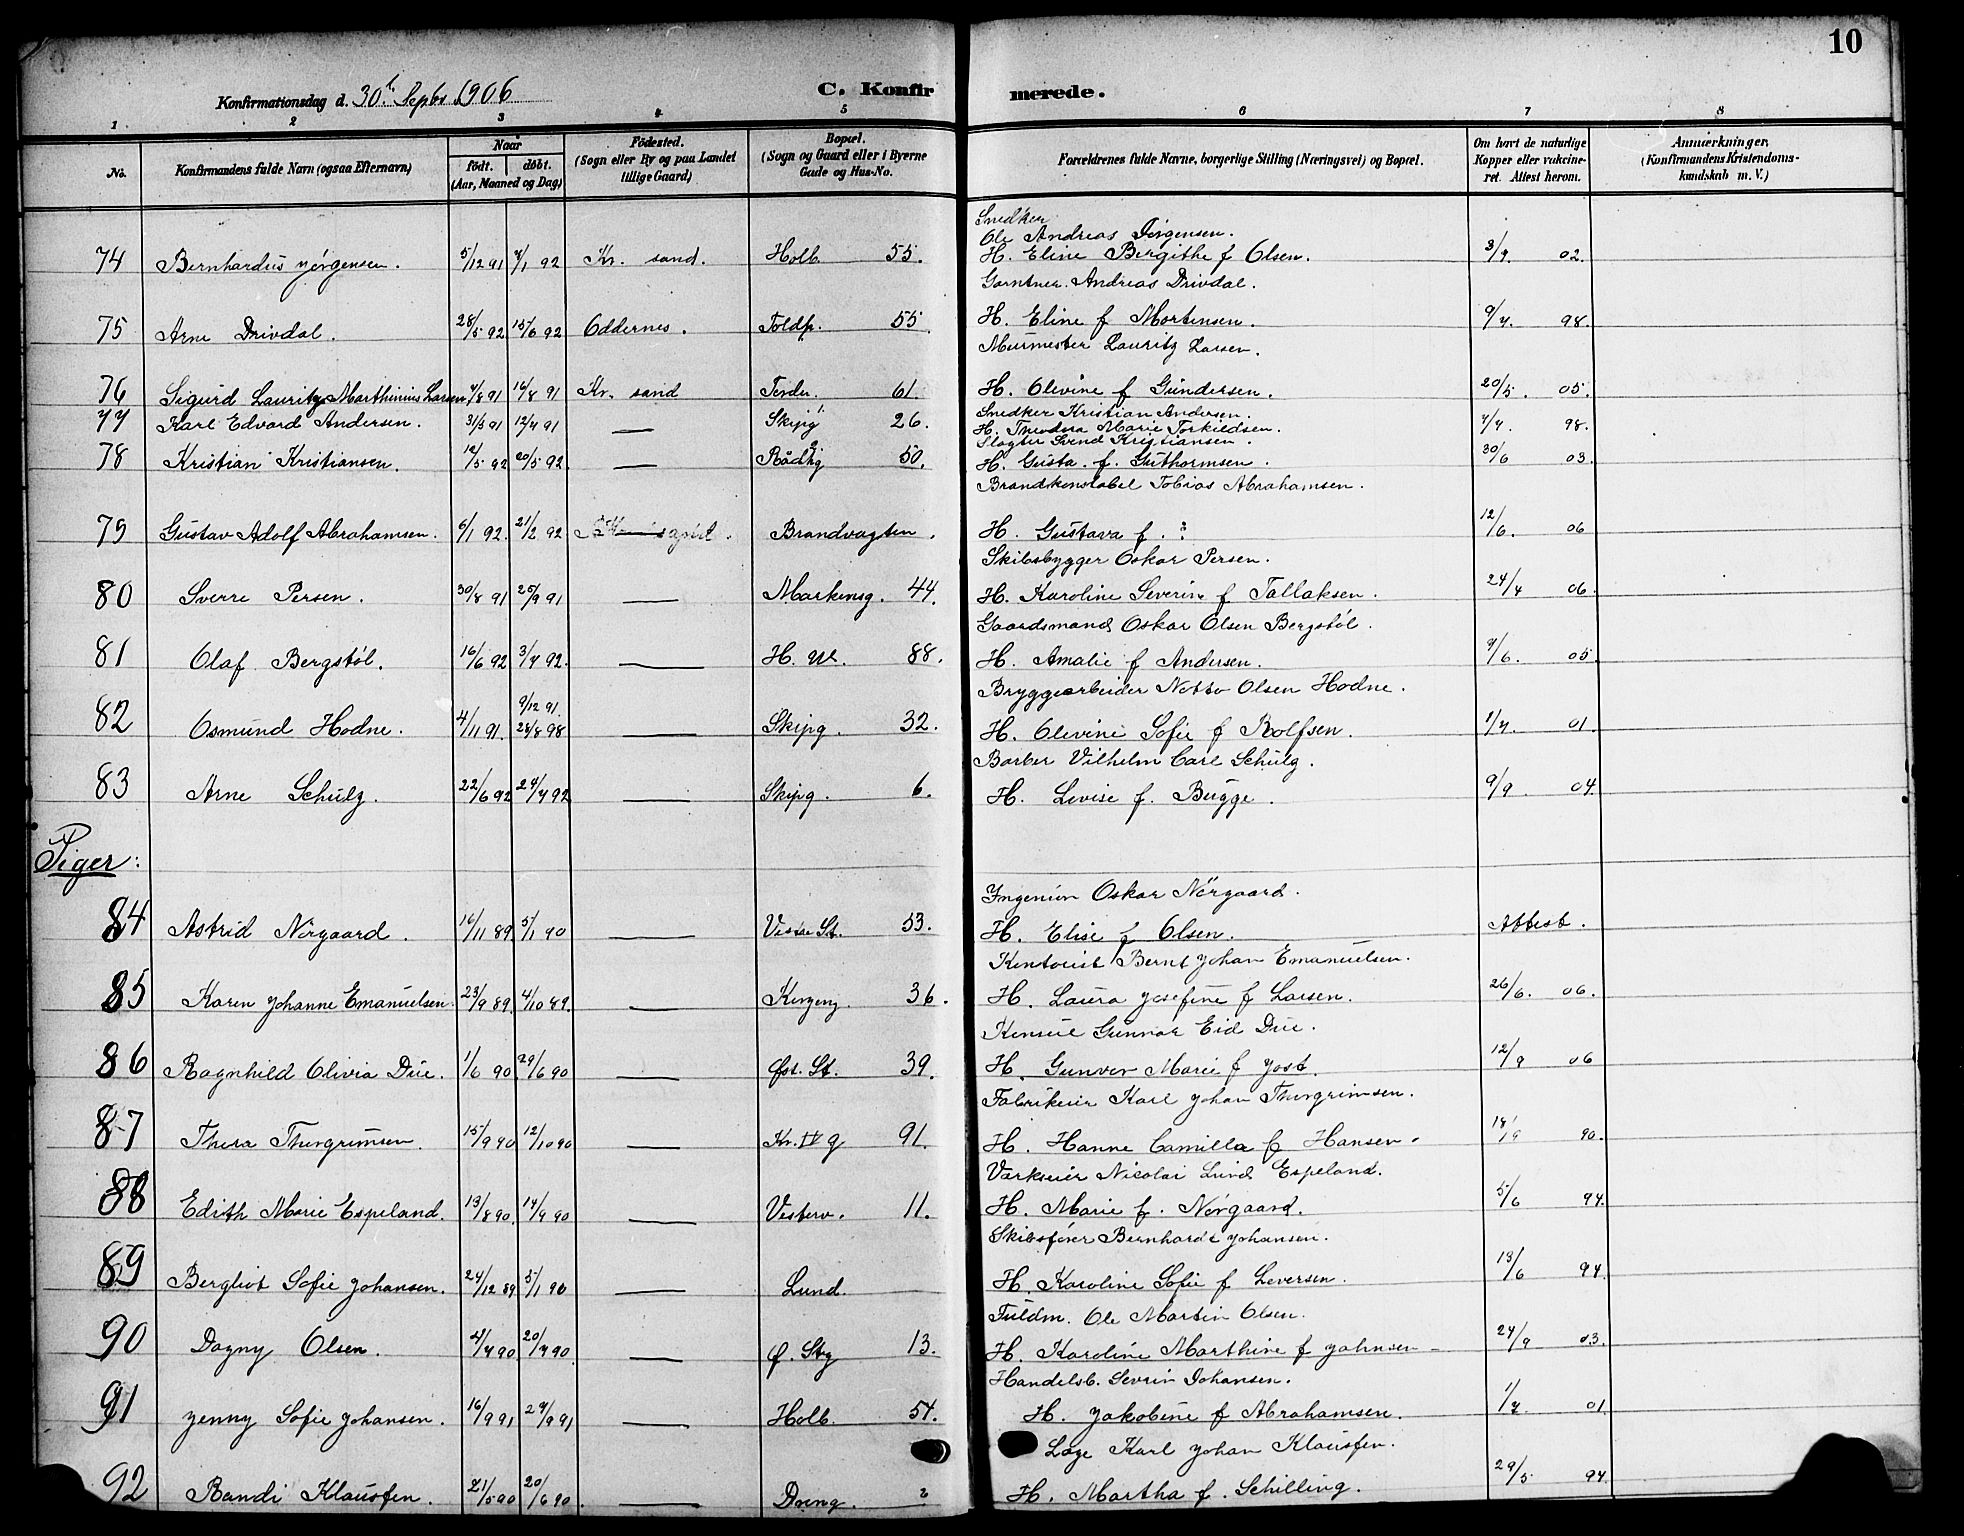 10
Konfirmationsdag d. 30t Septbr 1906
C. Konfirmerede.
1 2 3 4 5 6 7 8
No.
Konfirmandens fulde Navn (ogsaa Efternavn)
Naar
födt. döbt.
(Aar, Maaned og Dag)
Födested.
(Sogn eller By og paa Landet
tillige Gaard)
Bopæl.
(Sogn og Gaard eller i Byerne
Gade og Hus-No.
Forældrenes fulde Navne, borgerlige Stilling (Næringsvei) og Bopæl.
Om havt de naturlige
Kopper eller vaccine-
ret. Attest herom.
Anmærkninger.
(Konfirmandens Kristendoms-
kundskab m. V.)
Snedker
Ole Andreas Jørgensen.
74 Bernhardus Jørgensen. 5/12 91 7/1 92 Kr. sand. Holb. 55. H. Eline Bergithe f Olsen. 3/9 02.
Gartner Andreas Drivdal.
75 Arne Drivdal. 28/5 92 15/6 92 Oddernes. Toldb. 55. H. Eline f Mortensen. 9/7. 98.
Murmester Lauritz Larsen.
76 Sigurd Lauritz Marthinius Larsen 7/8 91 16/8 91 Kr. sand Torden. 61. H. Olevine f Gundersen. 20/5. 05.
Snedker Kristian Andersen.
77 Karl Edvard Andersen. 31/3 91 12/4 91 — Skipg 26. H. Theodora Marie Torkildsen. 7/7. 98.
Slagter Svend Kristiansen.
78 Kristian Kristiansen. 12/5 92 20/5 92. — Rådhg 50. H. Gusta. f. Guthormsen. 30/6 03.
Brandkonstabel Tobias Abrahamsen.
79 Gustav Adolf Abrahamsen. 5/1 92. 21/2 92 Brandvagten. H. Gustava f. ? 12/6. 06
Skibsbygger Oskar Persen.
80 Sverre Persen. 30/8 91 25/9 91 — Markensg. 44. H. Karoline Severine f Tallaksen. 24/4 06.
Gaardsmand Oskar Olsen Bergstöl.
81 Olaf Bergstöl. 16/6 92 3/7 92. — H. W. 88. H. Amalie f Andersen. 9/6. 05.
Bryggearbeider Notto Olsen Hodne.
9/12 91.
82 Osmund Hodne. 4/11 91. 28/8 98 — Skipg. 32. H. Olevine Sofie f Rolfsen. 1/7. 01.
Barber Vilhelm Carl Schulz.
83 Arne Schulz. 22/6 92 24/7 92 — Skipg. 6. H. Lovise f. Bugge. 9/9. 04.
Piger:
Ingeniør Oskar Nörgaard.
84 Astrid Nörgaard. 16/11 89. 5/1 90 — Vestre St. 53. H. Elise f Olsen. Attest.
Kontorist Bernt Johan Emanuelsen.
85 Karen Johanne Emanuelsen. 23/9 89. 4/10 89. — Kongeng. 36. H. Laura Josefine f Larsen. 26/6. 06.
Konsul Gunnar Eid Due.
86 Ragnhild Olivia Due. 1/6 90 29/6 90 — Øst. St. 39. H. Gunvor Marie f Jost. 12/9 06
Fabrikeier Karl Johan Thorgrimsen.
87 Thora Thorgrimsen. 15/9 90 12/10 90 — Kr. IV g 91. H. Hanne Camilla f Hansen. 18/9 90.
Værkseier Nicolai Lund Espeland.
88 Edith Marie Espeland. 13/8 90. 14/9 90 — Vesterv. 11. H. Marie f. Nörgaard. 5/6 94.
Skibsfører Bernhardt Johansen.
89 Bergliot Sofie Johansen. 24/12 89 5/1 90 — Lund. H. Karoline Sofie f Leversen. 13/6 94.
Fuldm. Ole Martin Olsen.
90 Dagny Olsen. 4/7 90 20/7 90. — Ø. Stg 13. H. Karoline Marthine f Johnsen 24/9 03.
Handelsb. Sevrin Johansen.
91 Jenny Sofie Johansen. 16/9 91 27/9 91 — Holb. 54. H. Jakobine f Abrahamsen. 1/7. 01.
Læge Karl Johan Klausfen.
92 Randi Klausfen. 21/5 90 20/6 90. — Dronng. ? H. Martha f. Schilling. 29/5 94.